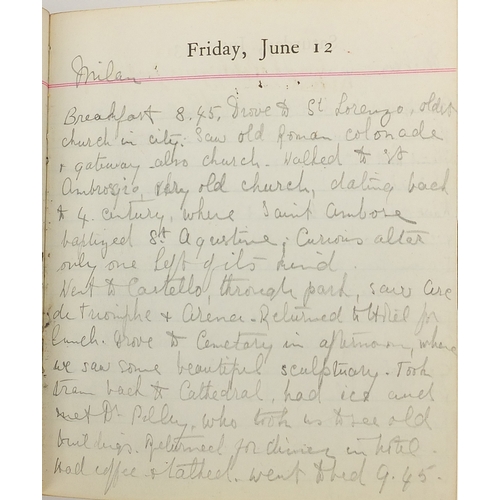 Friday, June 12.
Milan.
Breakfast 8.45. Drove to St Lorenzo, oldest
church in city. Saw old Roman colonade
+ gateway also church. Walked to St
Ambrogio, very old church, dating back
to 4. century, where Saint Ambose
baptized St Agustine; Curious altar
only one left of its kind.
Went to Castello, through park, saw Arc
de Triomphe + Arena. Returned to Hotel for
lunch. Drove to Cemetary in afternoon, where
we saw some beautiful sculptuary. Took
tram back to Cathedral, had ices and
met Dr, who took us to see old
buildings. Returned for dinner in hotel.
Had coffee + talked. went to bed 9.45.